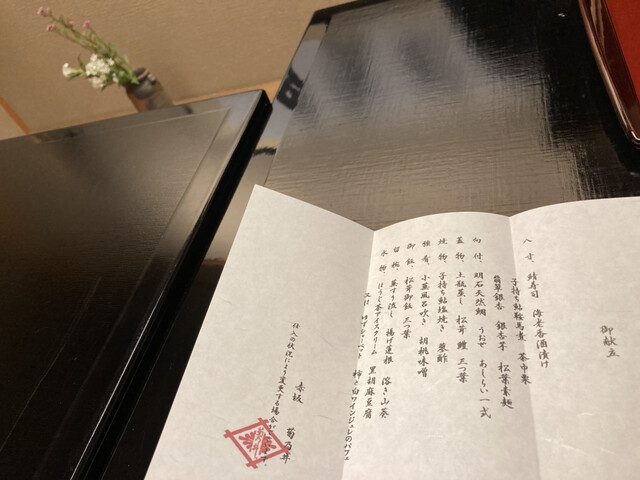 御献立
八寸、鯖寿司 海老香酒漬け
子持ち鮎鞍馬煮 茶巾栗
翡翠銀杏 銀杏芋 松葉素麺
向付、明石天然鯛 うおぜ あしらい一式
蓋物、土瓶蒸し 松茸 鱧 三つ葉
焼物、子持ち鮎塩焼き 蓼酢
強肴、小蕪風呂吹き 胡桃味噌
御飯、松茸御飯 三つ葉
留椀、蕪すり流し 揚げ蓮根 溶き山葵
水物、ほうじ茶アイスクリーム 黒胡麻豆腐
又は 柿と白ワインジュレのパフェ
仕入の状況により変更する場合が
赤坂 菊乃井